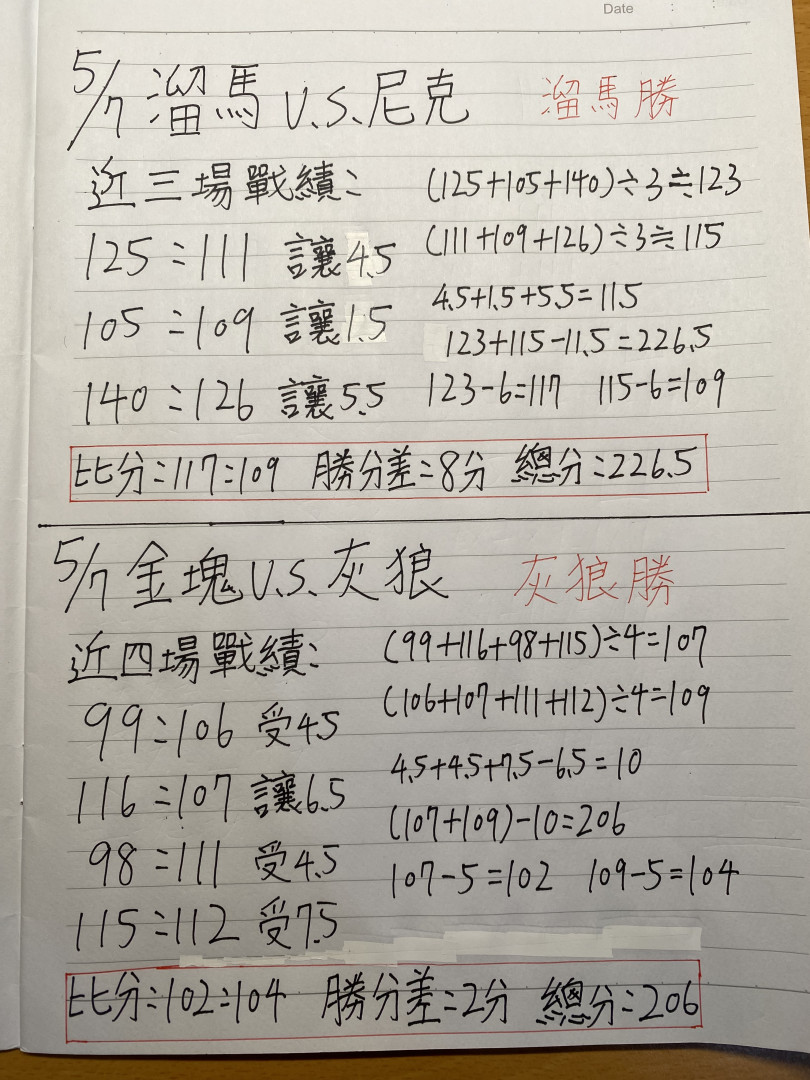 Date : :
5/7 溜馬 V.S.尼克 溜馬勝
近三場戰績: (125+105+140)÷3≒123
125:111 讓4.5 (111+109+126)÷3≒115
105:109 讓1.5 4.5+1.5+5.5=11.5
123+115-11.5=226.5
140:126 讓5.5 123-6=117 115-6=109
比分:117:109 勝分差:8分 總分:226.5
5/7 金塊V.S.灰狼 灰狼勝
近四場戰績: (99+116+98+115)÷4=107
99:106 受4.5 (106+107+111+112)÷4=109
116:107 讓6.5 4.5+4.5+7.5-6.5=10
98:111 受4.5 (107+109)-10=206
115:112 受7.5 107-5=102 109-5=104
比分:102:104 勝分差:2分 總分:206